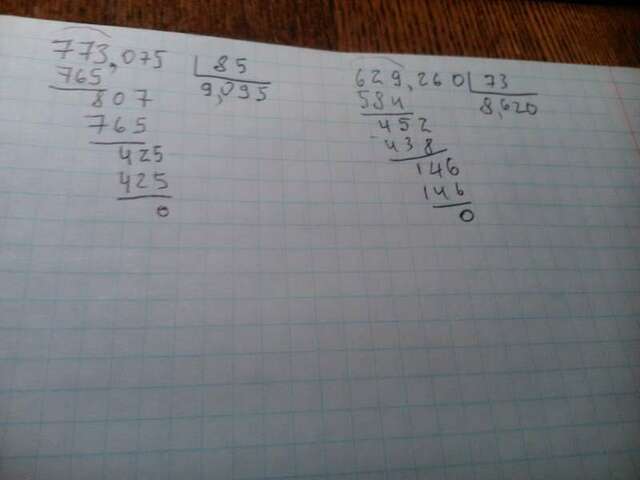 773,075 85
765 9,095
807
765
425
425
0
629,260 73
584 8,620
452
438
146
146
0